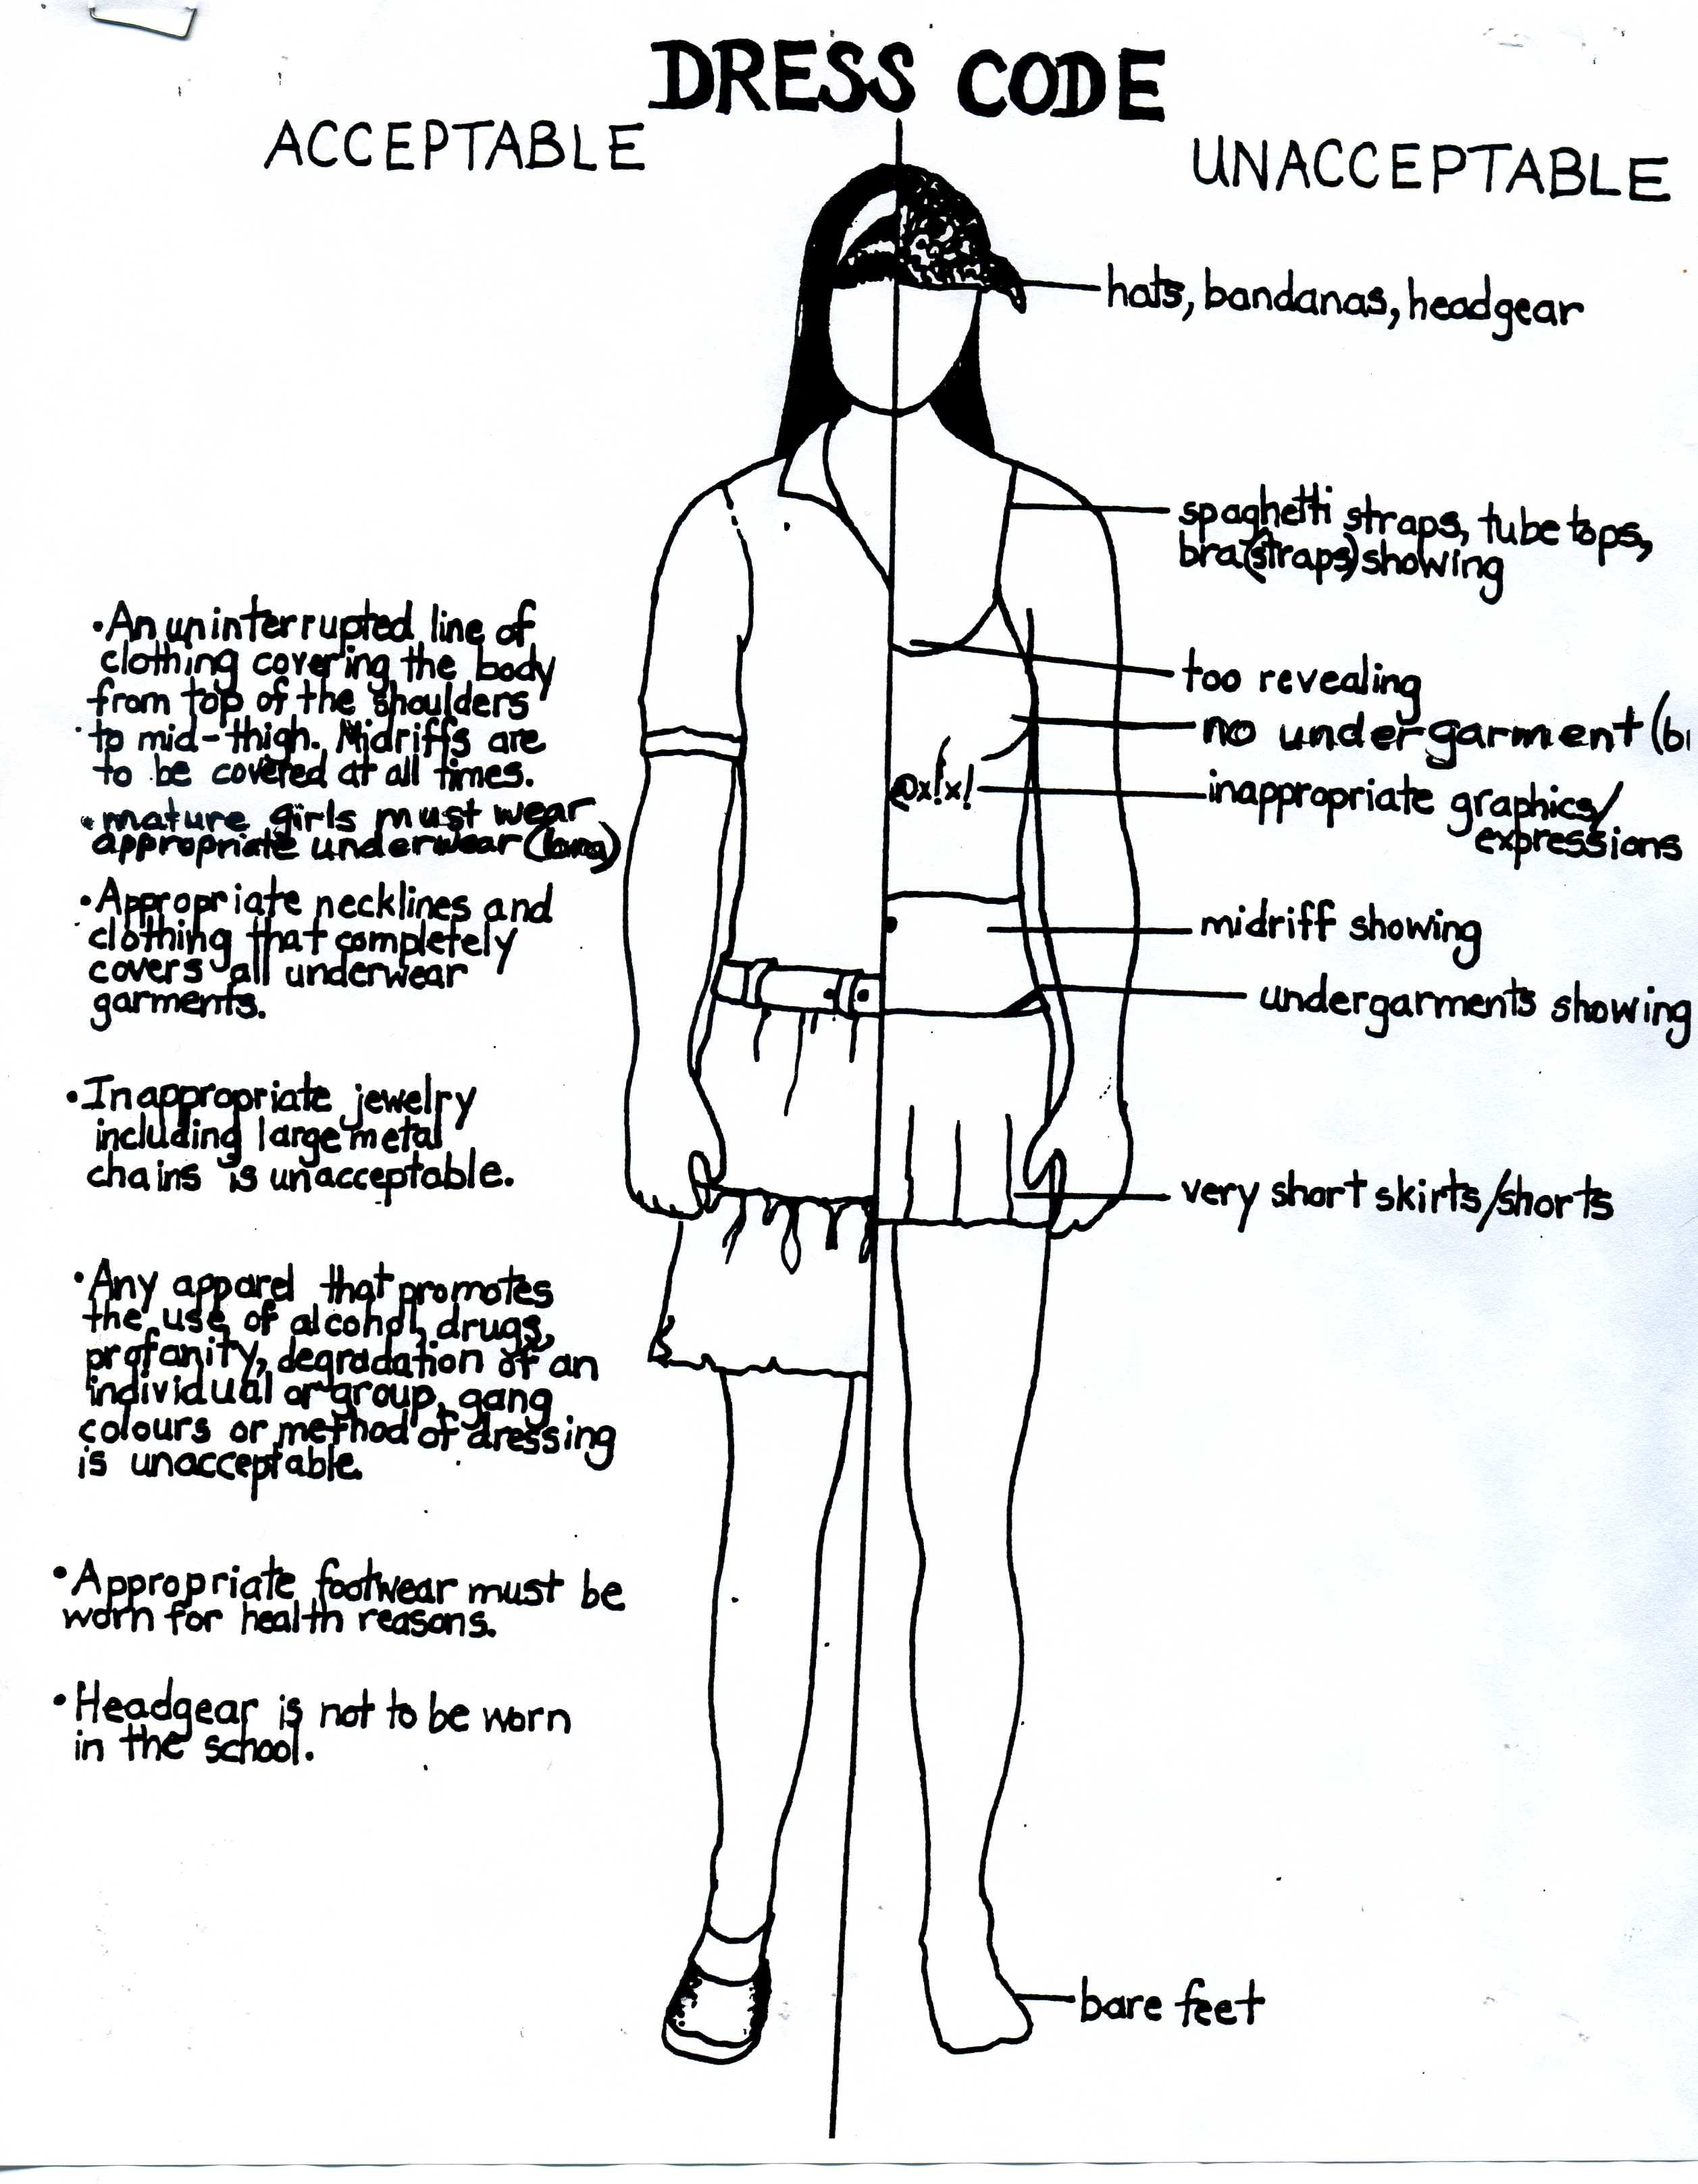 DRESS CODE
ACCEPTABLE
UNACCEPTABLE
hats, bandanas, headgear
spaghetti straps, tube tops,
bra(straps) showing
too revealing
no undergarment
@x!x!
inappropriate graphics/
expressions
midriff showing
undergarments showing
very short skirts/shorts
bare feet
•An uninterrupted line of
clothing covering the body
from top of the shoulders
to mid-thigh. Midriffs are
to be covered at all times.
•mature girls must wear
appropriate underwear
•Appropriate necklines and
clothing that completely
covers all underwear
garments.
•Inappropriate jewelry
including large metal
chains is unacceptable.
•Any apparel that promotes
the use of alcohol, drugs,
profanity, degradation of an
individual or group, gang
colours or method of dressing
is unacceptable.
•Appropriate footwear must be
worn for health reasons.
•Headgear is not to be worn
in the school.